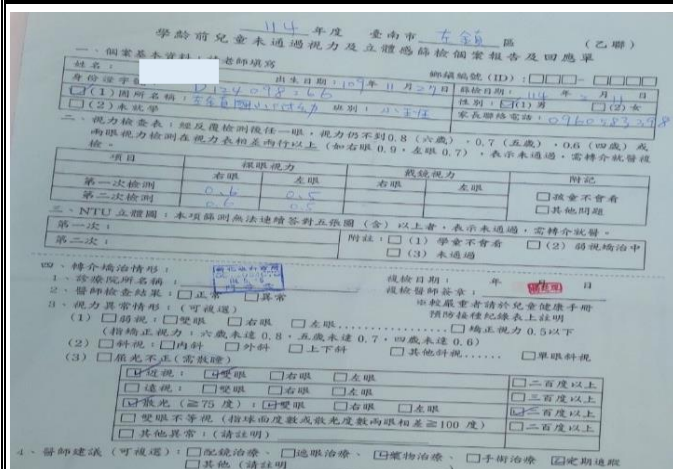 114 年度 臺南市 左鎮 區 (乙聯)
學齡前兒童未通過視力及立體感篩檢個案報告及回應單
一、個案基本資料：老師填寫
姓名： 出生日期：109年 11月 27日 篩檢編號 (ID)：□□□-□□□□
身份證字號 篩檢日期：114 年 2月 11日
☑(1)園所名稱： 班別： 性別：☑(1)男 □(2)女
□(2)未就學 家長聯絡電話：0960583598
二、視力檢查表：經反覆檢測後任一眼，視力仍不到0.8 (六歲)、0.7 (五歲)、0.6 (四歲) 或
兩眼視力檢測在視力表相差兩行以上 (如右眼 0.9，左眼 0.7)，表示未通過，需轉介就醫複
檢。
項目 裸眼視力 戴鏡視力 附記
右眼 左眼 右眼 左眼
第一次檢測 0.6 0.5 □孩童不會看
第二次檢測 0.6 0.5 □其他問題
三、NTU 立體圖：本項篩測無法連續答對五張圖 (含) 以上者，表示未通過，需轉介就醫。
第一次： 附註：□ (1) 學童不會看 □ (2) 弱視矯治中
第二次： □ (3) 未通過
四、轉介矯治情形：
1、診療院所名稱： 複檢日期： 年 月 日
2、醫師檢查結果：□正常 □異常 複檢醫師簽章：
3、視力異常情形：(可複選) ※較嚴重者請於兒童健康手冊
預防接種紀錄表上註明
(1) □弱視：□雙眼 □右眼 □左眼 □矯正視力 0.5以下
(指矯正視力：六歲未達 0.8，五歲未達 0.7，四歲未達 0.6)
(2) □斜視：□內斜 □外斜 □上下斜 □其他斜視 □單眼斜視
(3) □屈光不正(需散瞳)
☑近視： ☑雙眼 □右眼 □左眼 □二百度以上
□遠視： □雙眼 □右眼 □左眼 □三百度以上
☑散光 (≧75 度)：☑雙眼 □右眼 □左眼 ☑二百度以上
□ 雙眼不等視 (指球面度數或散光度數兩眼相差≧100 度) □二百度以上
□ 其他異常：(請註明)
4、醫師建議 (可複選)：□配鏡治療、□遮眼治療、☑藥物治療、□手術治療 ☑定期追蹤
□其他 (請註明